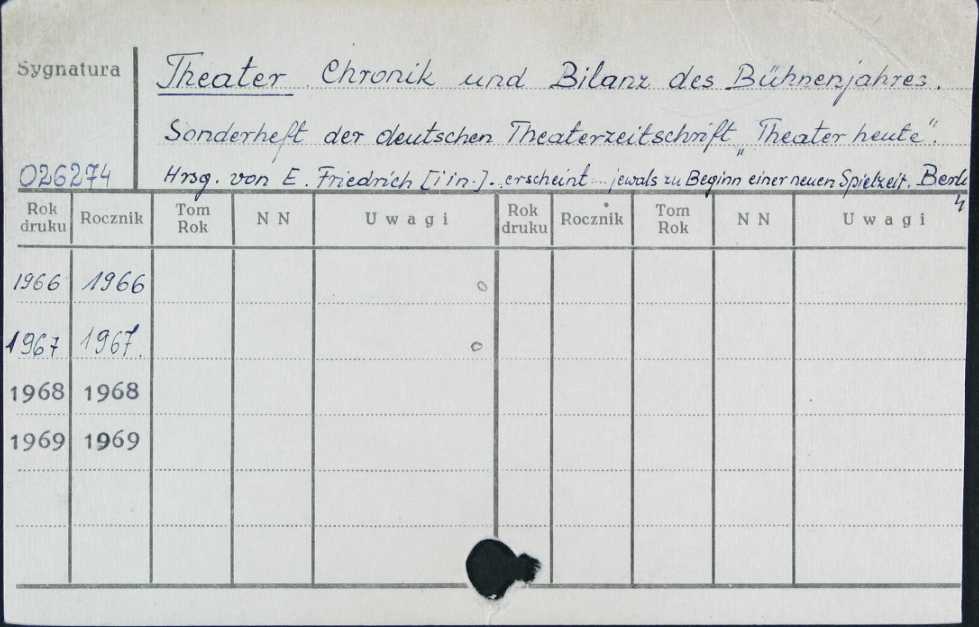 Sygnatura
Theater. Chronik und Bilanz des Bühnenjahres.
Sonderheft der deutschen Theaterzeitschrift „Theater heute".
026274 Hrsg. von E. Friedrich [i in.]. erscheint jewals zu Beginn einer neuen Spielzeit. Berli
Rok druku Rocznik Tom Rok N N Uwagi Rok druku Rocznik Tom Rok N N Uwagi
1966 1966
1967 1967.
1968 1968
1969 1969